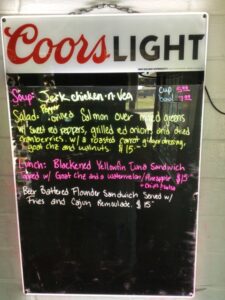 Coors LIGHT
Soup- Jerk chicken-n-veg Cup 5.00
Bowl 7.00
Salad- Pepper Grilled Salmon over mixed greens
w/ sweet red peppers, grilled red onions and dried
cranberries. w/ a roasted carrot ginger dressing,
goat chz and walnuts $15-
Lunch: Blackened Yellowfin Tuna Sandwich
topped w/ Goat chz and a watermelon/Pineapple $15
Beer Battered Flounder Sandwich Served w/
Fries and Cajun Remoulade. $15